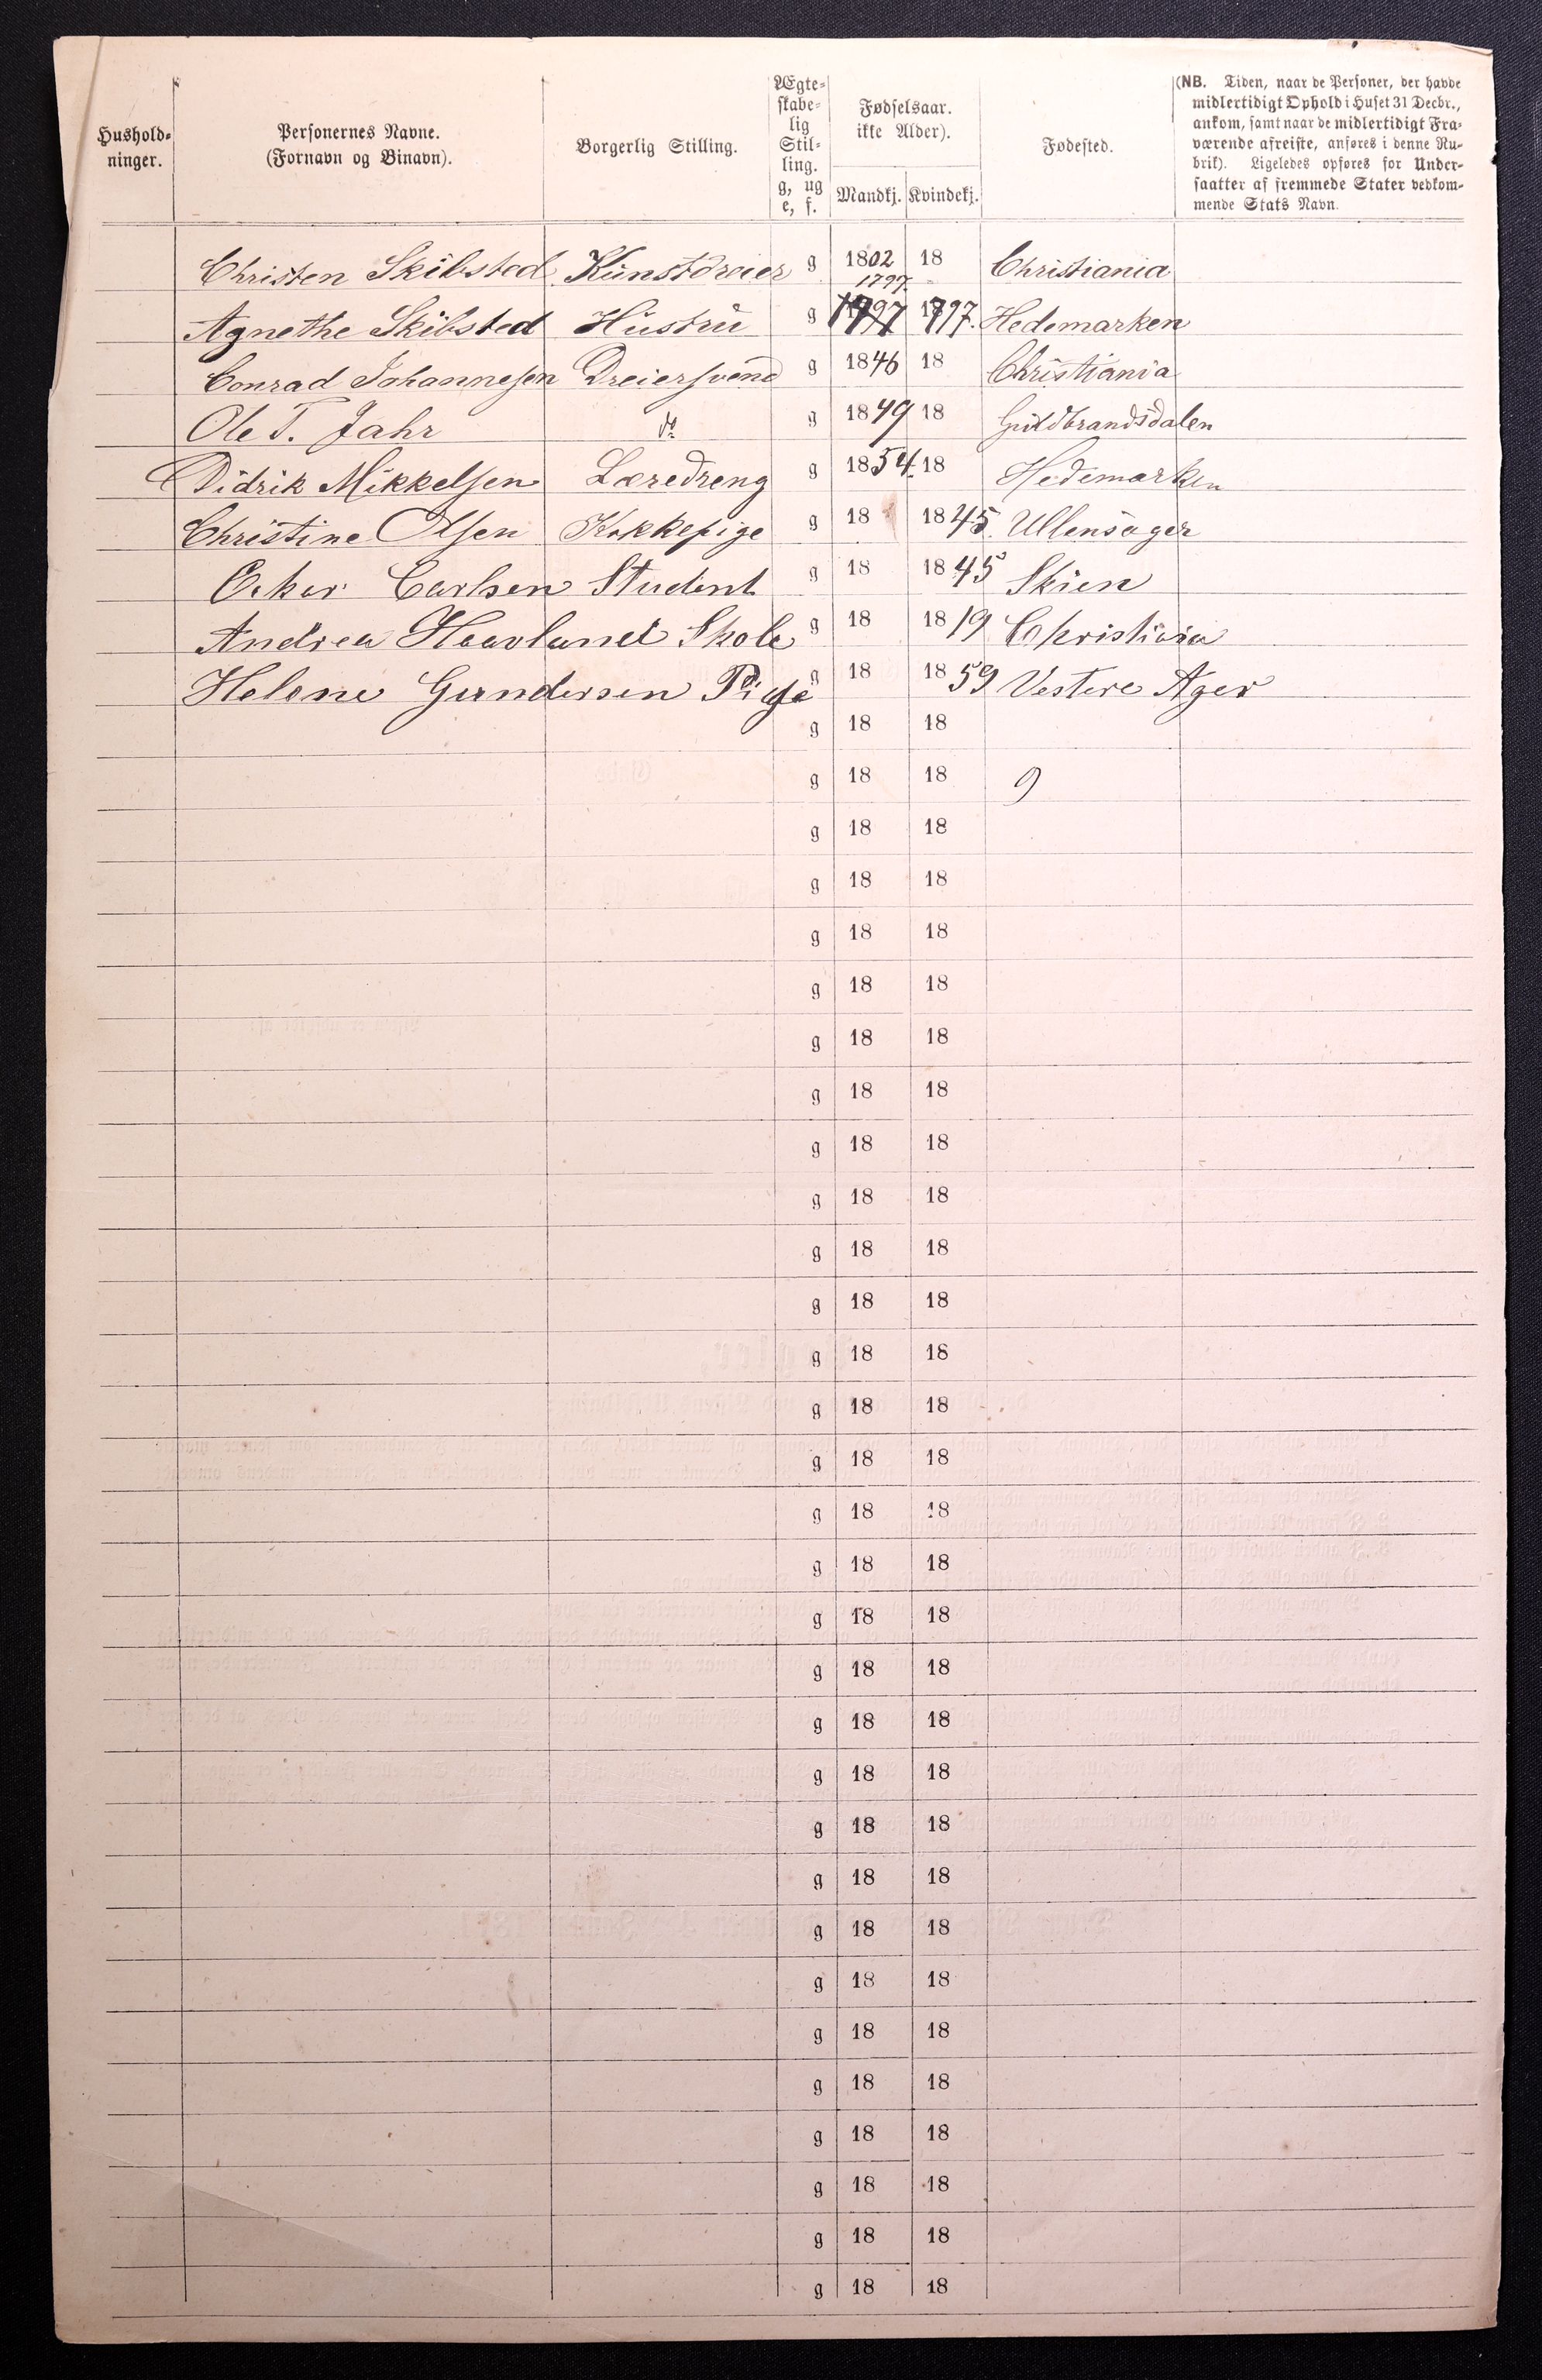 Hushold-
ninger.
Personernes Navne.
(Fornavn og Binavn).
Borgerlig Stilling.
Ægte-
skabe-
lig
Stil-
ling.
g, ug
e, f.
Fødselsaar.
ikke Alder).
Mandkj. Kvindekj.
Fødested.
(NB. Tiden, naar de Personer, der havde
midlertidigt Ophold i Huset 31 Decbr.,
ankom, samt naar de midlertidigt Fra-
værende afreiste, anføres i denne Ru-
brik). Ligeledes opføres for Under-
saatter af fremmede Stater vedkom-
mende Stats Navn.
Christen Skibsted Kunstdreier g 1802 18 Christiania
1797.
Agnethe Skibsted Hustru g 1797 1797. Hedemarken
Conrad Johannesen Dreiersvend g 1846 18 Christiania
Ole T. Jahr do g 1849 18 Guldbrandsdalen
Didrik Mikkelsen Læredreng g 1854. 18 Hedemarken
Christine Olsen Kokkepige g 18 1845. Ullensager
Carlsen Student g 18 1845 Skien
Andrea Haavland Skole g 18 1819 Christiania
Helene Gundersen Pige g 18 1859 Vestere Ager
g 18 18
g 18 18 9
g 18 18
g 18 18
g 18 18
g 18 18
g 18 18
g 18 18
g 18 18
g 18 18
g 18 18
g 18 18
g 18 18
g 18 18
g 18 18
g 18 18
g 18 18
g 18 18
g 18 18
g 18 18
g 18 18
g 18 18
g 18 18
g 18 18
g 18 18
g 18 18
g 18 18
g 18 18
g 18 18
g 18 18
g 18 18